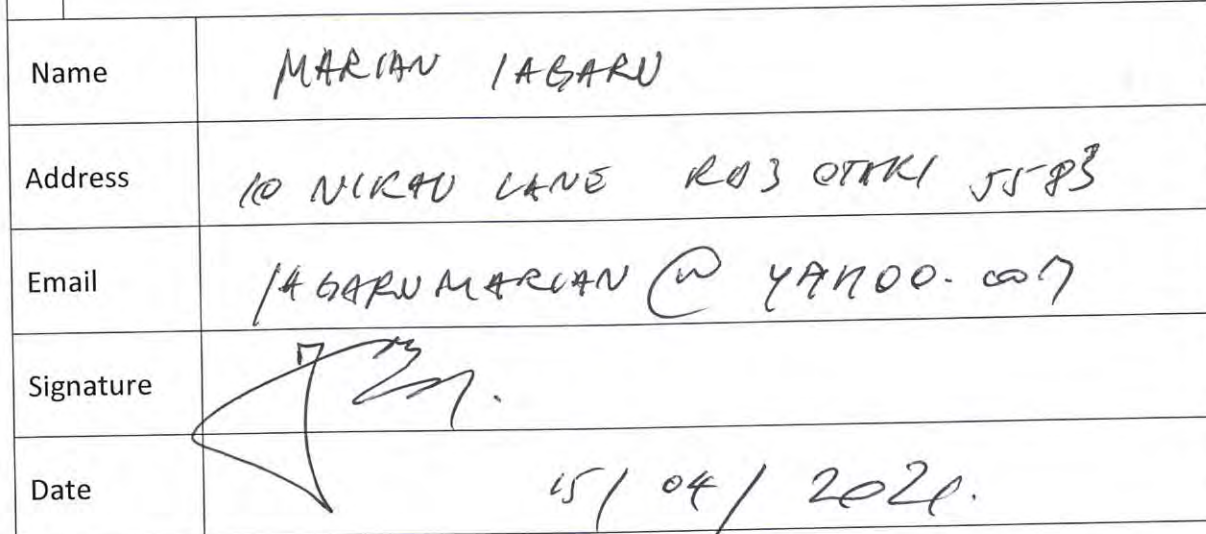 Name MARIAN IAGARU
Address 10 NIKAU LANE RD3 OTAKI 5583
Email IAGARUMARIAN@YAHOO.COM
Signature
Date 15/04/2021.